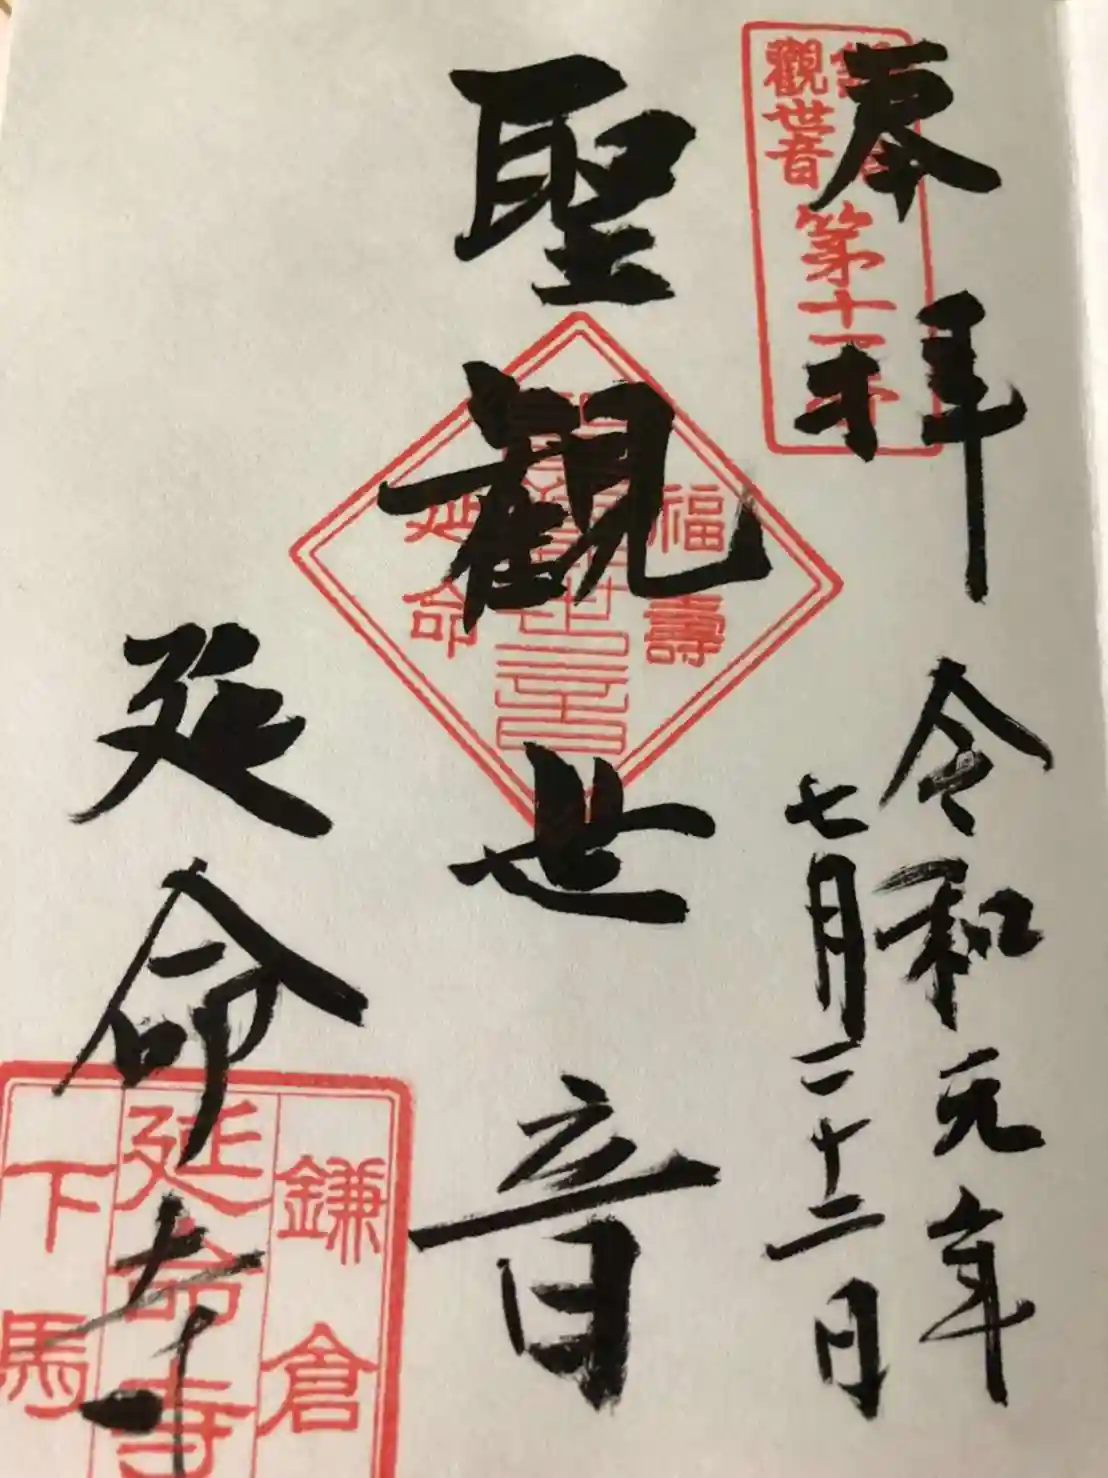 奉拝
令和元年
七月二十二日
觀世音
第十
聖観世音
福壽
延命
延命寺
鎌倉
延命寺
下馬